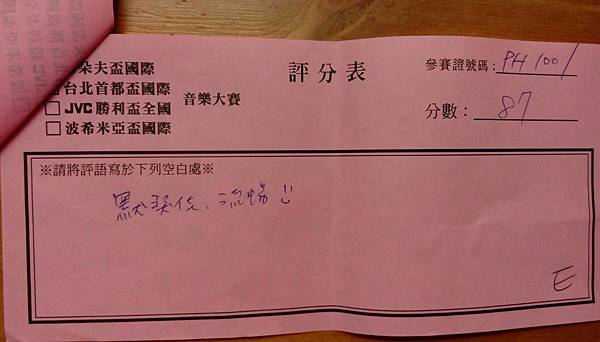 朵夫盃國際
台北首都盃國際
JVC勝利盃全國
波希米亞盃國際
音樂大賽
評分表
參賽證號碼：PH 1001
分數：87
※請將評語寫於下列空白處※
觸鍵佳、流暢
E